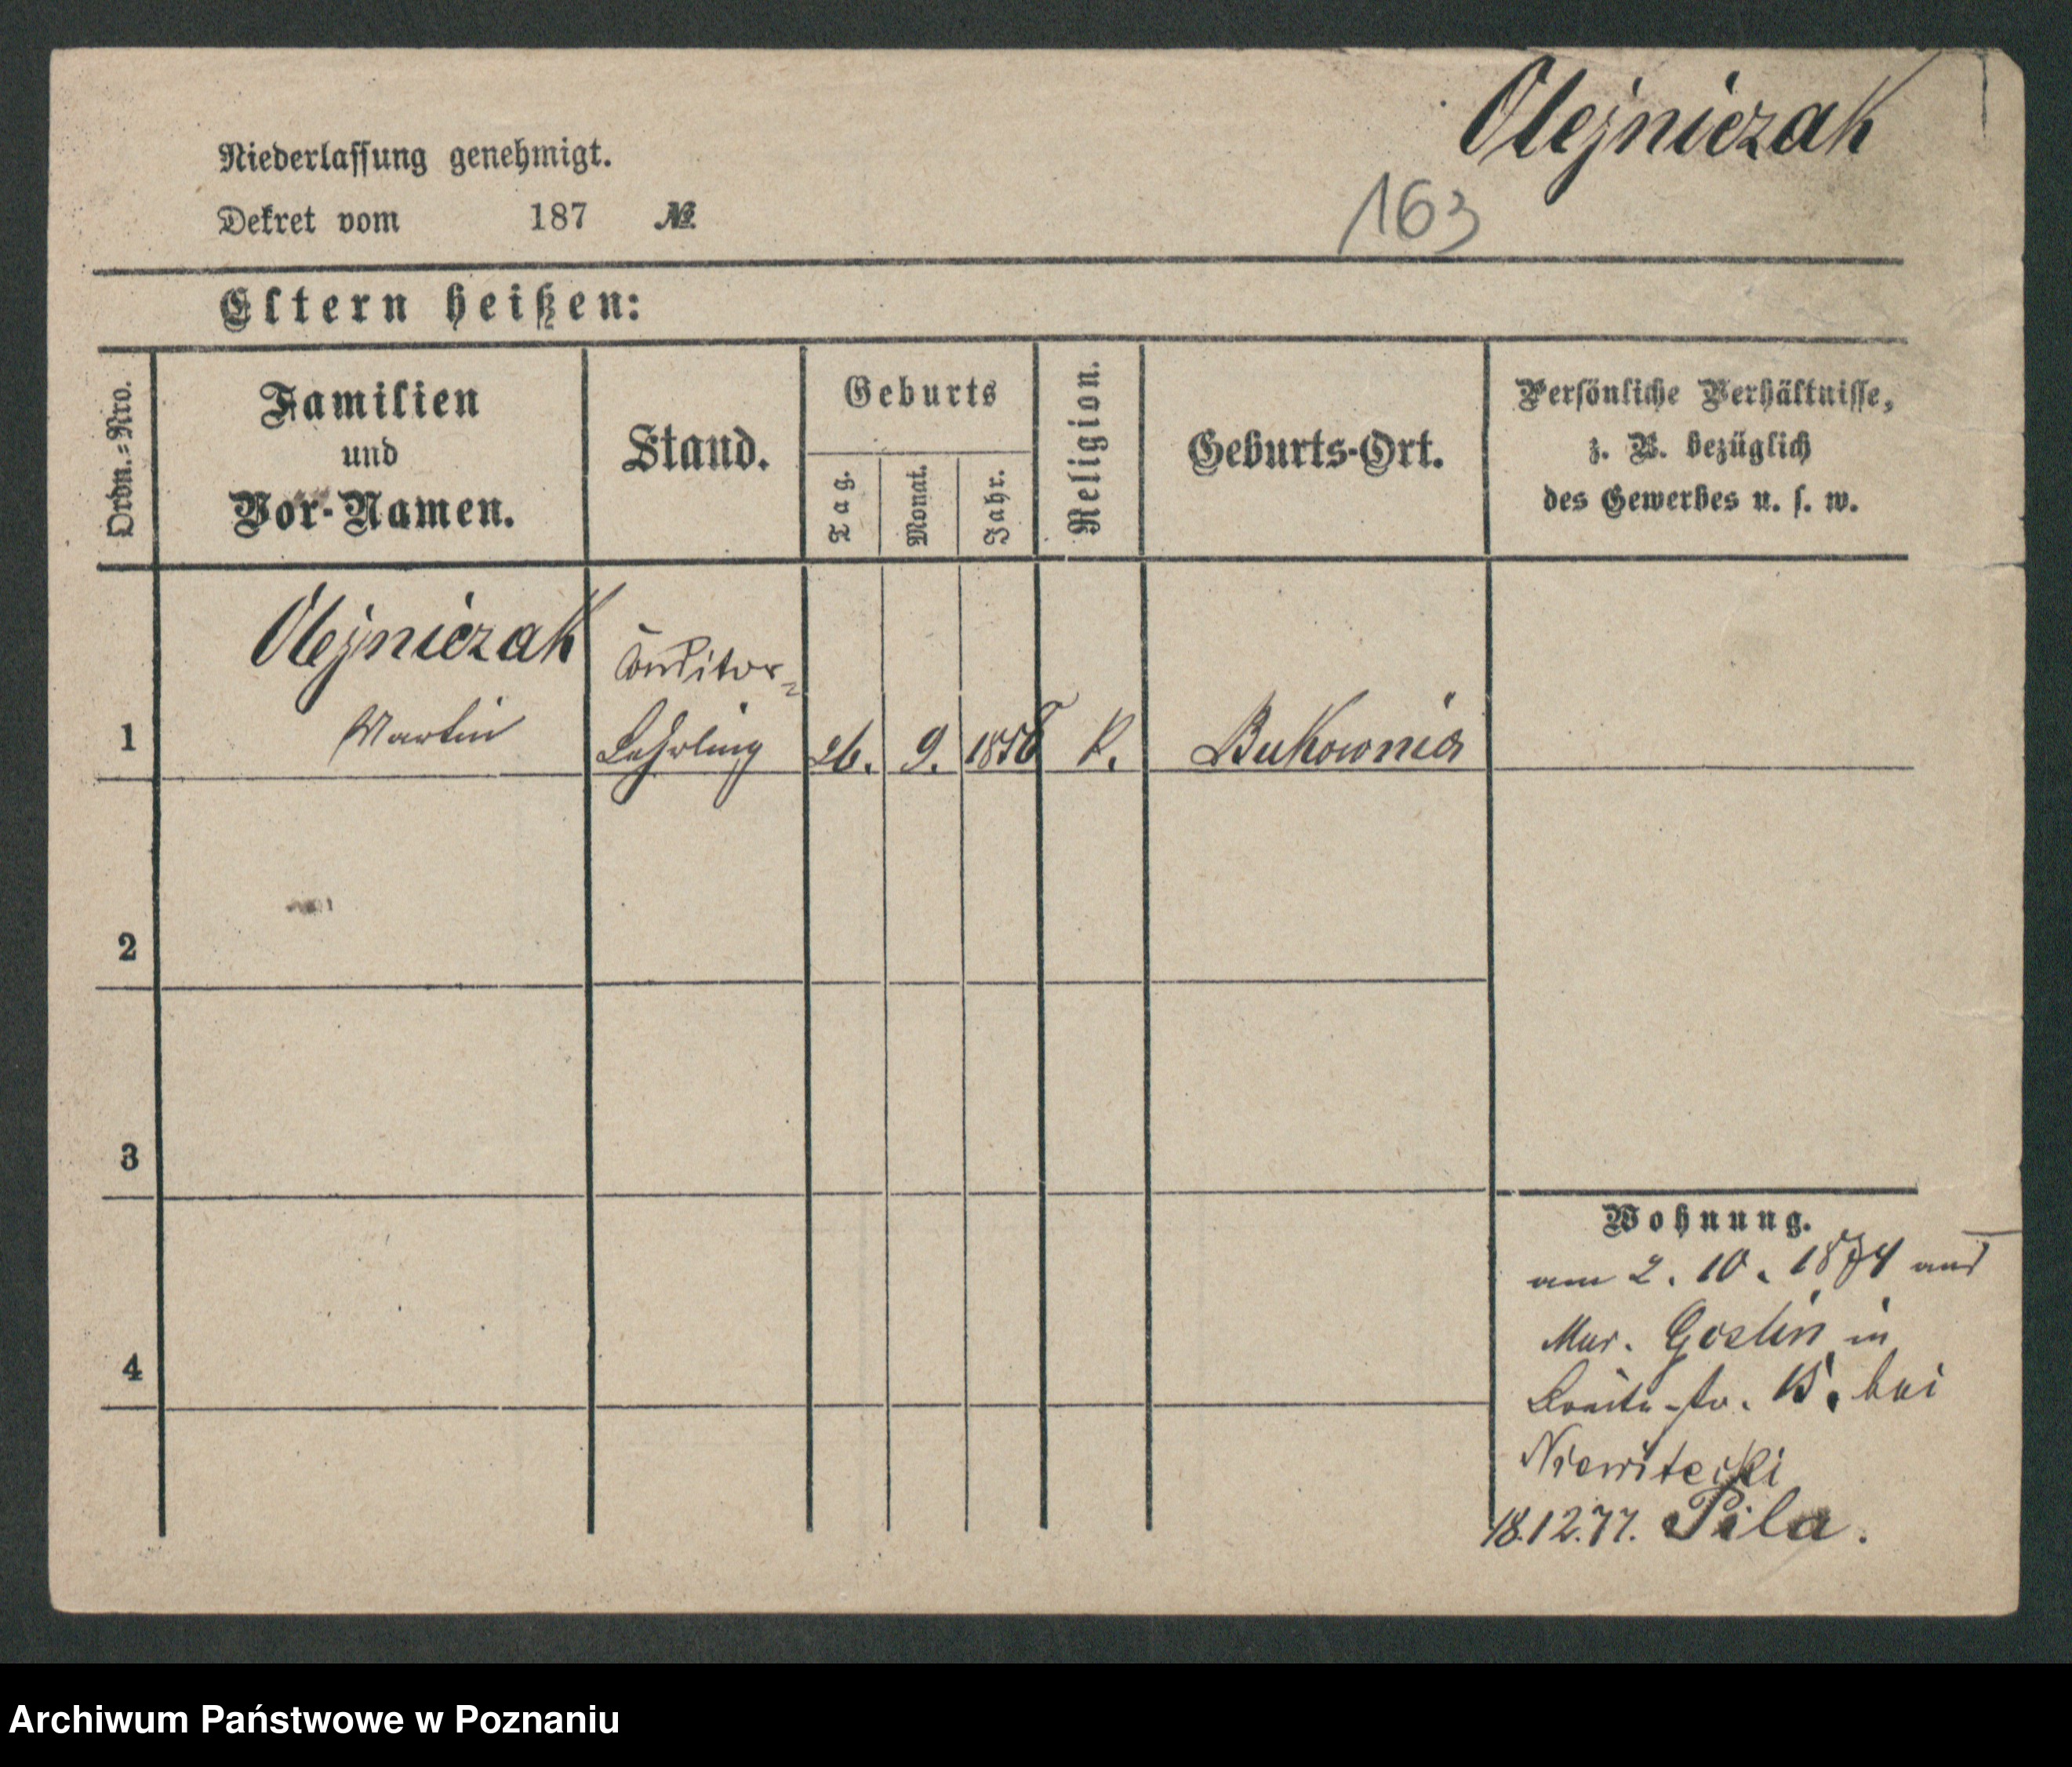 Olejniczak
Niederlassung genehmigt.
Dekret vom 187 №
163
Eltern heißen:
Ordn.=Nro.
Familien
und
Vor-Namen.
Stand.
Geburts
Tag.
Monat.
Jahr.
Religion.
Geburts-Ort.
Persönliche Verhältnisse,
z. B. bezüglich
des Gewerbes u. s. w.
Olejniczak
Conditor=
1 Martin Lehrling 26. 9. 1858 K.
2
3
Wohnung.
am 2. 10. 1874 aus
Mur. Goslin in
4
Breite-str. 15. bei
18.12.77. Pila.
Archiwum Państwowe w Poznaniu